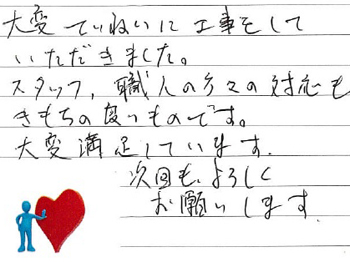 大変ていねいに工事をして
いただきました。
スタッフ、職人の方々の対応も
きもちの良いものです。
大変満足しています。
次回も、よろしく
お願いします。